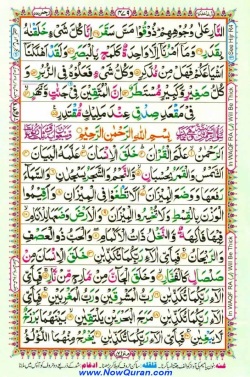 النَّارِ عَلٰى وُجُوْهِهِمْ ذُوْقُوْا مَسَّ سَقَرَ اِنَّا كُلَّ شَیْءٍ خَلَقْنٰهُ
بِقَدَرٍ وَمَاۤ اَمْرُنَاۤ اِلَّا وَاحِدَةٌ كَلَمْحٍۭ بِالْبَصَرِ وَلَقَدْ اَهْلَكْنَاۤ
اَشْیَاعَكُمْ فَهَلْ مِنْ مُّدَّكِرٍ وَكُلُّ شَیْءٍ فَعَلُوْهُ فِی الزُّبُرِ وَ
كُلُّ صَغِیْرٍ وَّكَبِیْرٍ مُّسْتَطَرٌ اِنَّ الْمُتَّقِیْنَ فِیْ جَنّٰتٍ وَّنَهَرٍ
فِیْ مَقْعَدِ صِدْقٍ عِنْدَ مَلِیْكٍ مُّقْتَدِرٍ
بِسْمِ اللهِ الرَّحْمٰنِ الرَّحِیْمِ
اَلرَّحْمٰنُ عَلَّمَ الْقُرْاٰنَ خَلَقَ الْاِنْسَانَ عَلَّمَهُ الْبَیَانَ
اَلشَّمْسُ وَالْقَمَرُ بِحُسْبَانٍ وَّالنَّجْمُ وَالشَّجَرُ یَسْجُدٰنِ وَالسَّمَآءَ
رَفَعَهَا وَوَضَعَ الْمِیْزَانَ اَلَّا تَطْغَوْا فِی الْمِیْزَانِ وَاَقِیْمُوا
الْوَزْنَ بِالْقِسْطِ وَلَا تُخْسِرُوا الْمِیْزَانَ وَالْاَرْضَ وَضَعَهَا لِلْاَنَامِ
فِیْهَا فَاكِهَةٌ وَّالنَّخْلُ ذَاتُ الْاَكْمَامِ وَالْحَبُّ ذُو الْعَصْفِ
وَالرَّیْحَانُ فَبِاَیِّ اٰلَآءِ رَبِّكُمَا تُكَذِّبٰنِ خَلَقَ الْاِنْسَانَ مِنْ
صَلْصَالٍ كَالْفَخَّارِ وَخَلَقَ الْجَآنَّ مِنْ مَّارِجٍ مِّنْ نَّارٍ فَبِاَیِّ
اٰلَآءِ رَبِّكُمَا تُكَذِّبٰنِ رَبُّ الْمَشْرِقَیْنِ وَرَبُّ الْمَغْرِبَیْنِ فَبِاَیِّ
اٰلَآءِ رَبِّكُمَا تُكَذِّبٰنِ مَرَجَ الْبَحْرَیْنِ یَلْتَقِیٰنِ بَیْنَهُمَا بَرْزَخٌ
لَّا یَبْغِیٰنِ فَبِاَیِّ اٰلَآءِ رَبِّكُمَا تُكَذِّبٰنِ یَخْرُجُ مِنْهُمَا اللُّؤْلُؤُ
www.NowQuran.com